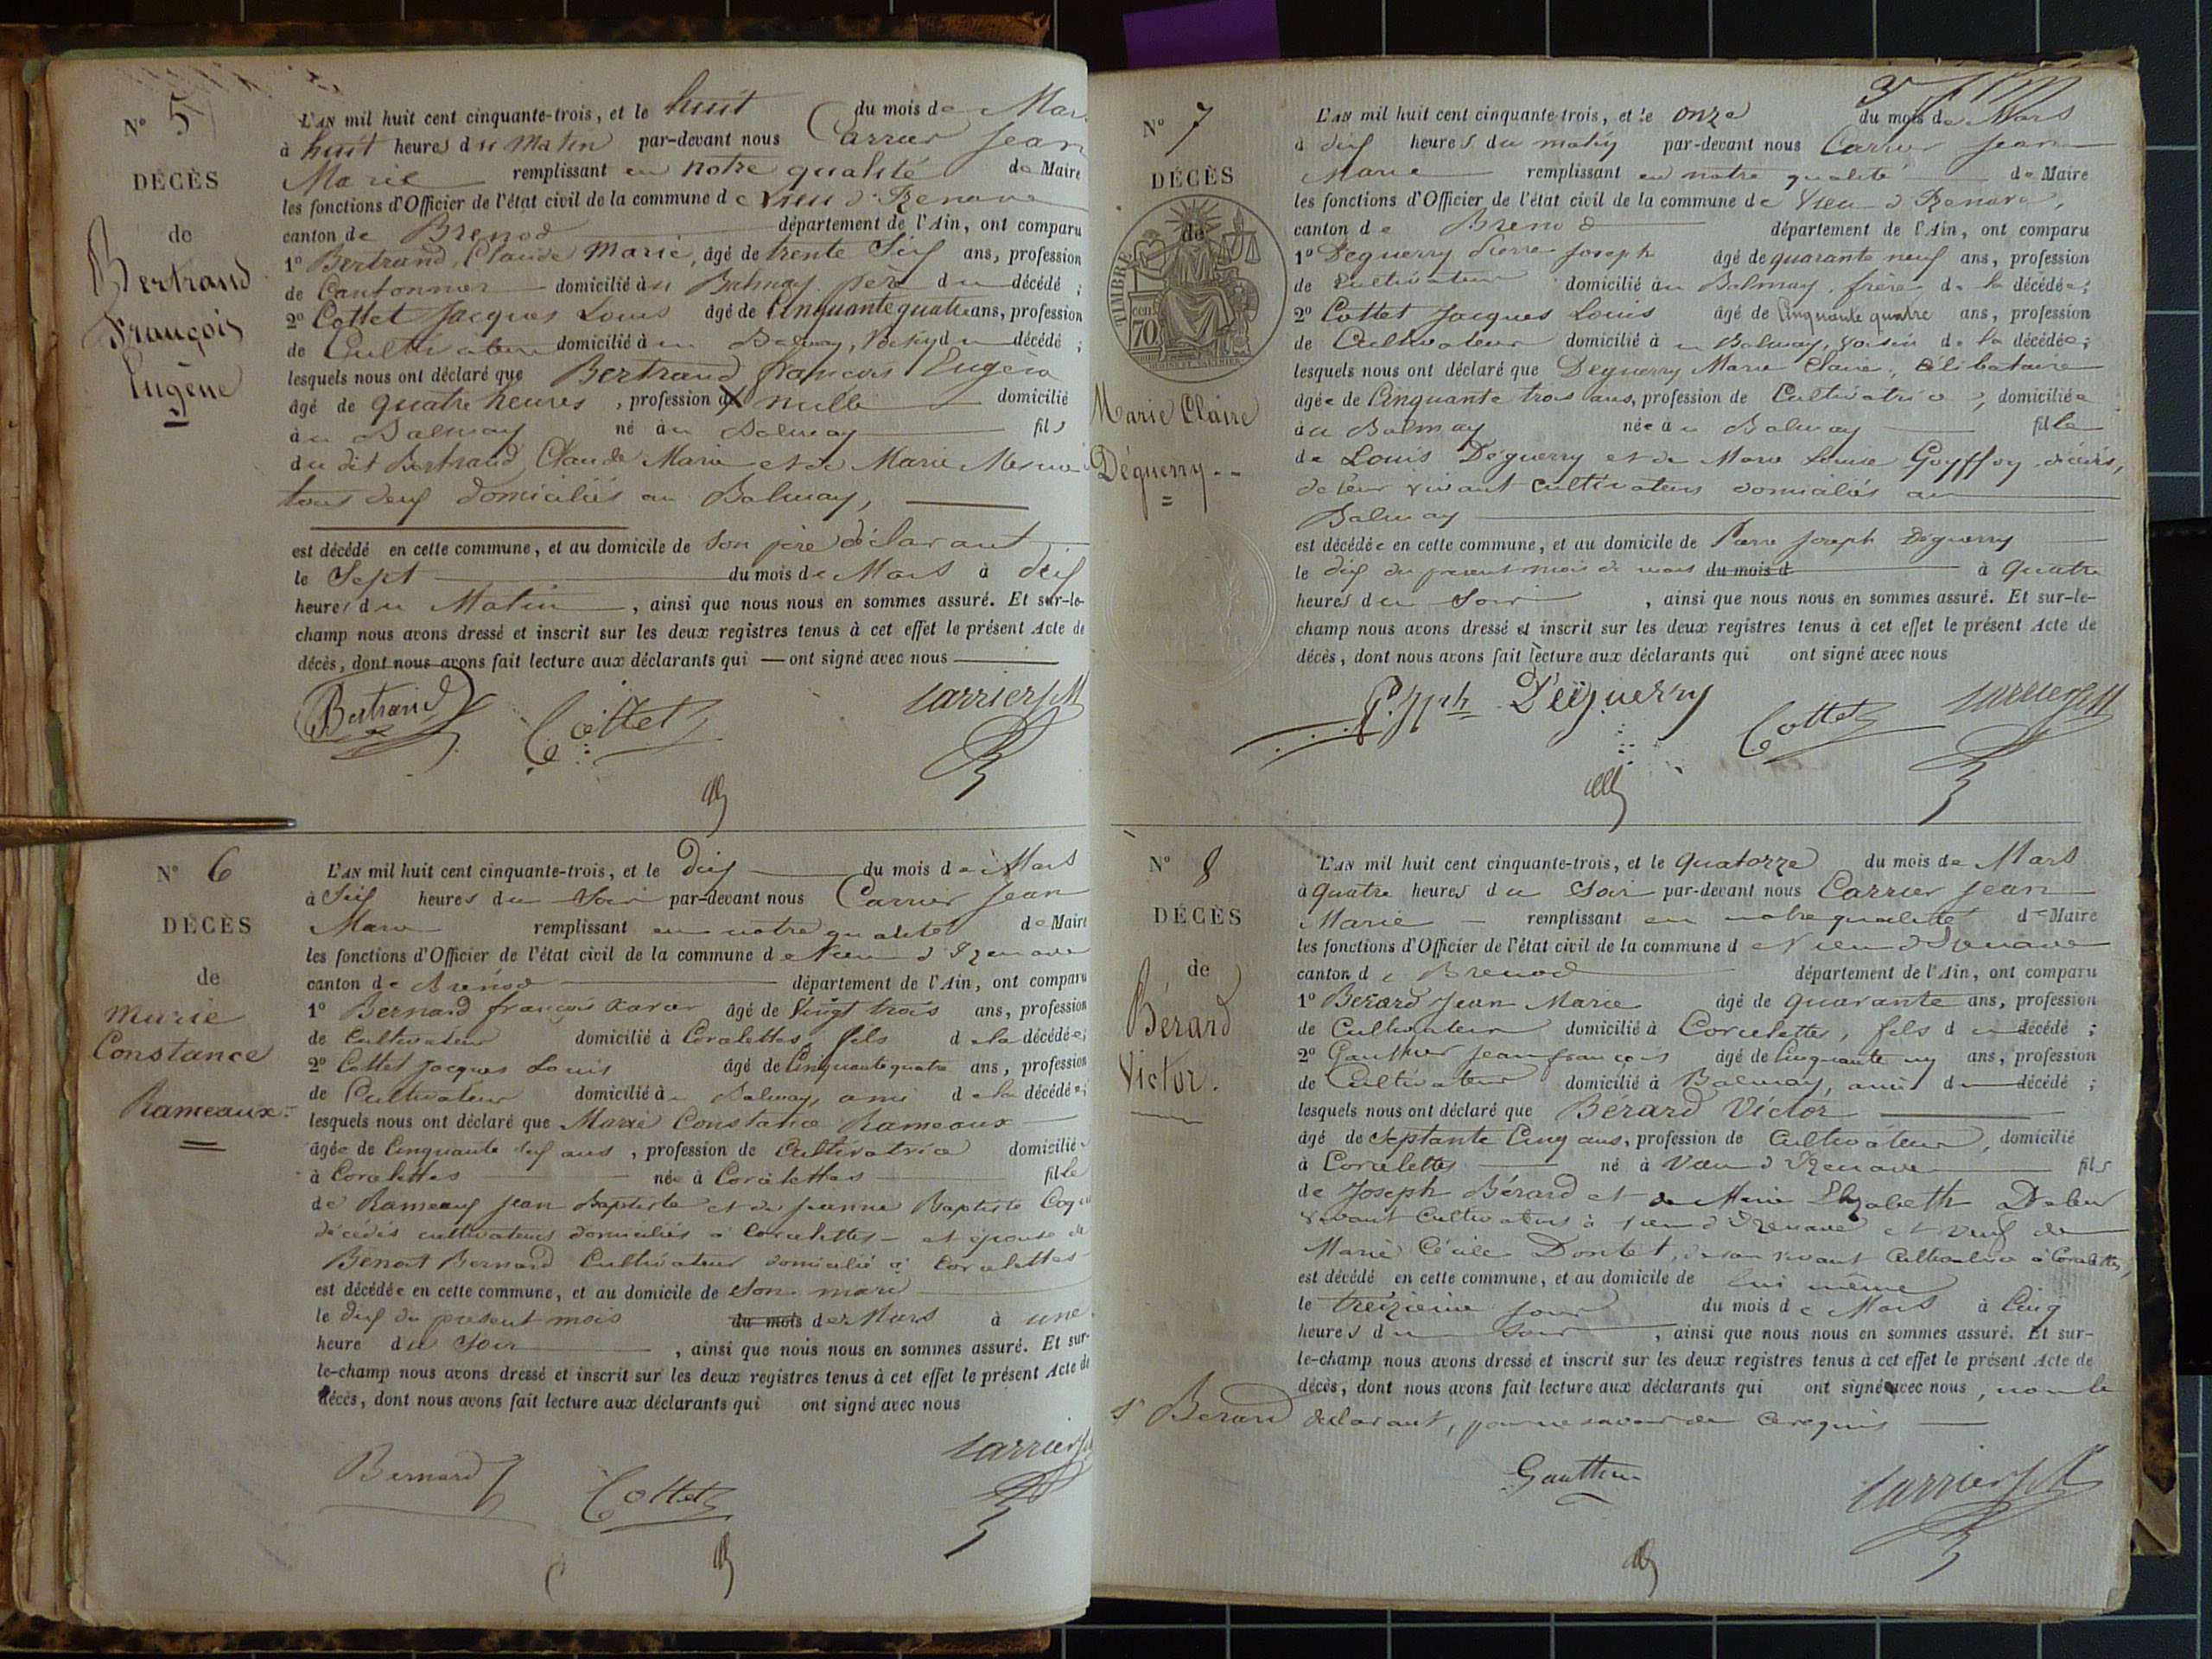 N° 5
DÉCÈS
de
Bertrand
François
Eugène
L'AN mil huit cent cinquante-trois, et le huit du mois de Mars
à huit heures du Matin par-devant nous Carrier Jean
Marie remplissant en notre qualité de Maire
les fonctions d'Officier de l'état civil de la commune de Vieu d'Izenave
canton de Brenod département de l'Ain, ont comparu
1° Bertrand, Claude Marie, âgé de trente Six ans, profession
de Cantonnier domicilié au Balmay père du décédé ;
2° Cottet Jacques Louis âgé de Cinquante quatre ans, profession
de Cultivateur domicilié à u Balmay, du décédé ;
lesquels nous ont déclaré que Bertrand françois Eugène
âgé de quatre heures , profession de nulle domicilié
à u Balmay né àu Balmay fils
du dit Bertrand Claude Marie et de Marie
tous deux domiciliés au Balmay,
est décédé en cette commune, et au domicile de son père déclarant
le Sept du mois de Mars à dix
heures du Matin , ainsi que nous nous en sommes assuré. Et sur-le-
champ nous avons dressé et inscrit sur les deux registres tenus à cet effet le présent Acte de
décès, dont nous avons fait lecture aux déclarants qui — ont signé avec nous
Bertrand Cottet Carrier J M
N° 6
DÉCÈS
de
Marie
Constance
Rameaux
L'AN mil huit cent cinquante-trois, et le dix du mois de Mars
à Six heures du Soir par-devant nous Carrier Jean
Marie remplissant en notre qualité de Maire
les fonctions d'Officier de l'état civil de la commune de Vieu d'Izenave
canton de Brénod département de l'Ain, ont comparu
1° Bernard françois Xavier âgé de Vingt trois ans, profession
de Cultivateur domicilié à Corcelettes, fils de la décédée ;
2° Cottet Jacques Louis âgé de Cinquante quatre ans, profession
de Cultivateur domicilié à u Balmay, ami de la décédée ;
lesquels nous ont déclaré que Marie Constance Rameaux
âgée de Cinquante dix ans , profession de Cultivatrice domiciliée
à Corcelettes née à Corcelettes fille
de Rameaux Jean Baptiste et de Jeanne Baptiste
décédés cultivateurs domiciliés à Corcelettes et épouse de
Benoit Bernard Cultivateur domicilié à Corcelettes
est décédée en cette commune, et au domicile de son mari
le dix du présent mois du mois de Mars à une
heure du Soir , ainsi que nous nous en sommes assuré. Et sur-
le-champ nous avons dressé et inscrit sur les deux registres tenus à cet effet le présent Acte de
décès, dont nous avons fait lecture aux déclarants qui ont signé avec nous
Bernard Cottet Carrier J
N° 7
DÉCÈS
de
TIMBRE
70 cent
Marie Claire
Déguerry
L'AN mil huit cent cinquante-trois, et le onze du mois de Mars
à dix heures du matin par-devant nous Carrier Jean
Marie remplissant en notre qualité de Maire
les fonctions d'Officier de l'état civil de la commune de Vieu d'Izenave,
canton de Brenod département de l'Ain, ont comparu
1° Deguerry Pierre Joseph âgé de quarante neuf ans, profession
de Cultivateur domicilié au Balmay, frère de la décédée ;
2° Cottet Jacques Louis âgé de Cinquante quatre ans, profession
de Cultivateur domicilié à u Balmay, voisin de la décédée ;
lesquels nous ont déclaré que Deguerry Marie Claire, Célibataire
âgée de Cinquante trois ans, profession de Cultivatrice , domiciliée
à u Balmay née à u Balmay fille
de Louis Déguerry et de Marie Louise Goyffoy décédés,
de leur vivant cultivateurs domiciliés au
Balmay
est décédée en cette commune, et au domicile de Pierre Joseph Déguerry
le dix du présent mois de mars du mois d à Quatre
heures du Soir , ainsi que nous nous en sommes assuré. Et sur-le-
champ nous avons dressé et inscrit sur les deux registres tenus à cet effet le présent Acte de
décès, dont nous avons fait lecture aux déclarants qui ont signé avec nous
Déguerry Cottet Carrier J M
N° 8
DÉCÈS
de
Bérard
Victor.
L'AN mil huit cent cinquante-trois, et le quatorze du mois de Mars
à quatre heures du Soir par-devant nous Carrier Jean
Marie remplissant en notre qualité de Maire
les fonctions d'Officier de l'état civil de la commune de Vieu d'Izenave
canton de Brenod département de l'Ain, ont comparu
1° Bérard Jean Marie âgé de quarante ans, profession
de Cultivateur domicilié à Corcelettes, fils du décédé ;
2° Gauthier Jean françois âgé de Cinquante un ans, profession
de Cultivateur domicilié à Balmay, ami du décédé ;
lesquels nous ont déclaré que Bérard Victor
âgé de Septante Cinq ans, profession de Cultivateur, domicilié
à Corcelettes né à Vieu d'Izenave fils
de Joseph Bérard et de Marie Elizabeth De leur
vivant Cultivateurs à Vieu d'Izenave et veuf de
Marie Cécile Dontet, de son vivant Cultivatrice à Corcelettes,
est décédé en cette commune, et au domicile de lui même
le treizième jour du mois de Mars à Cinq
heures du Soir , ainsi que nous nous en sommes assuré. Et sur-
le-champ nous avons dressé et inscrit sur les deux registres tenus à cet effet le présent Acte de
décès, dont nous avons fait lecture aux déclarants qui ont signé avec nous, non le
Sr Berard déclarant, pour ne savoir de ce requis
Gauthier Carrier J M